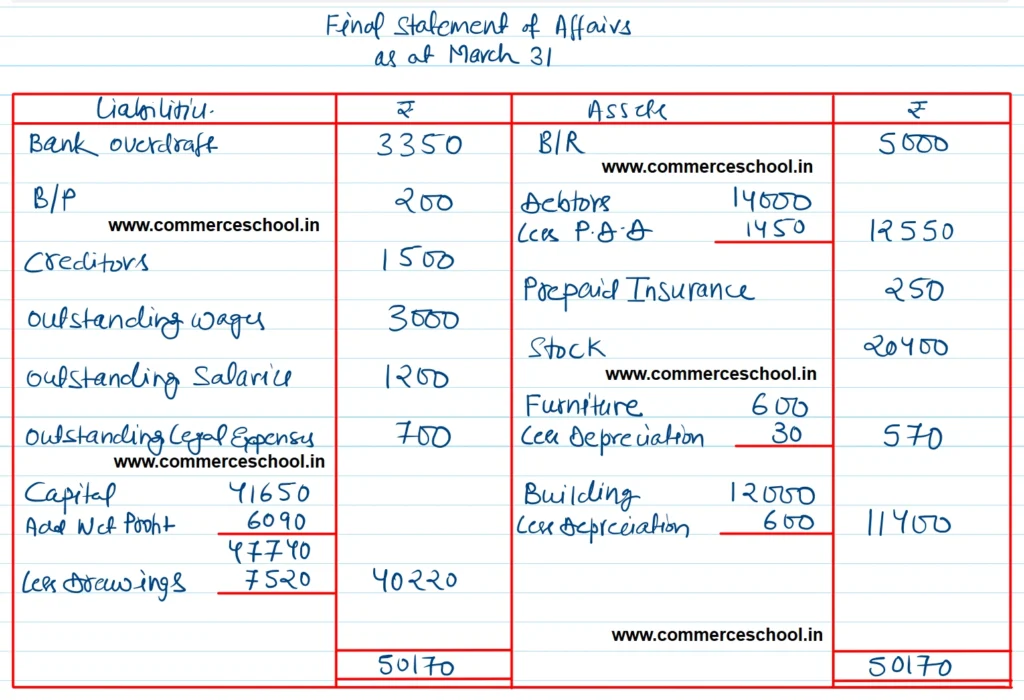 Final Statement of Affairs
as at March 31
Liabilities. ₹ Assets ₹
Bank overdraft 3350 B/R 5000
www.commerceschool.in
B/P 200 Debtors 14000
www.commerceschool.in Less P.D.D 1450 12550
Creditors 1500
Prepaid Insurance 250
Outstanding wages 3000
Stock 20400
Outstanding Salaries 1200 www.commerceschool.in
Furniture 600
Outstanding Legal Expenses 700 Less Depreciation 30 570
www.commerceschool.in
Capital 41650 Building 12000
Add Net Profit 6090 Less Depreciation 600 11400
47740
Less Drawings 7520 40220
www.commerceschool.in
50170 50170